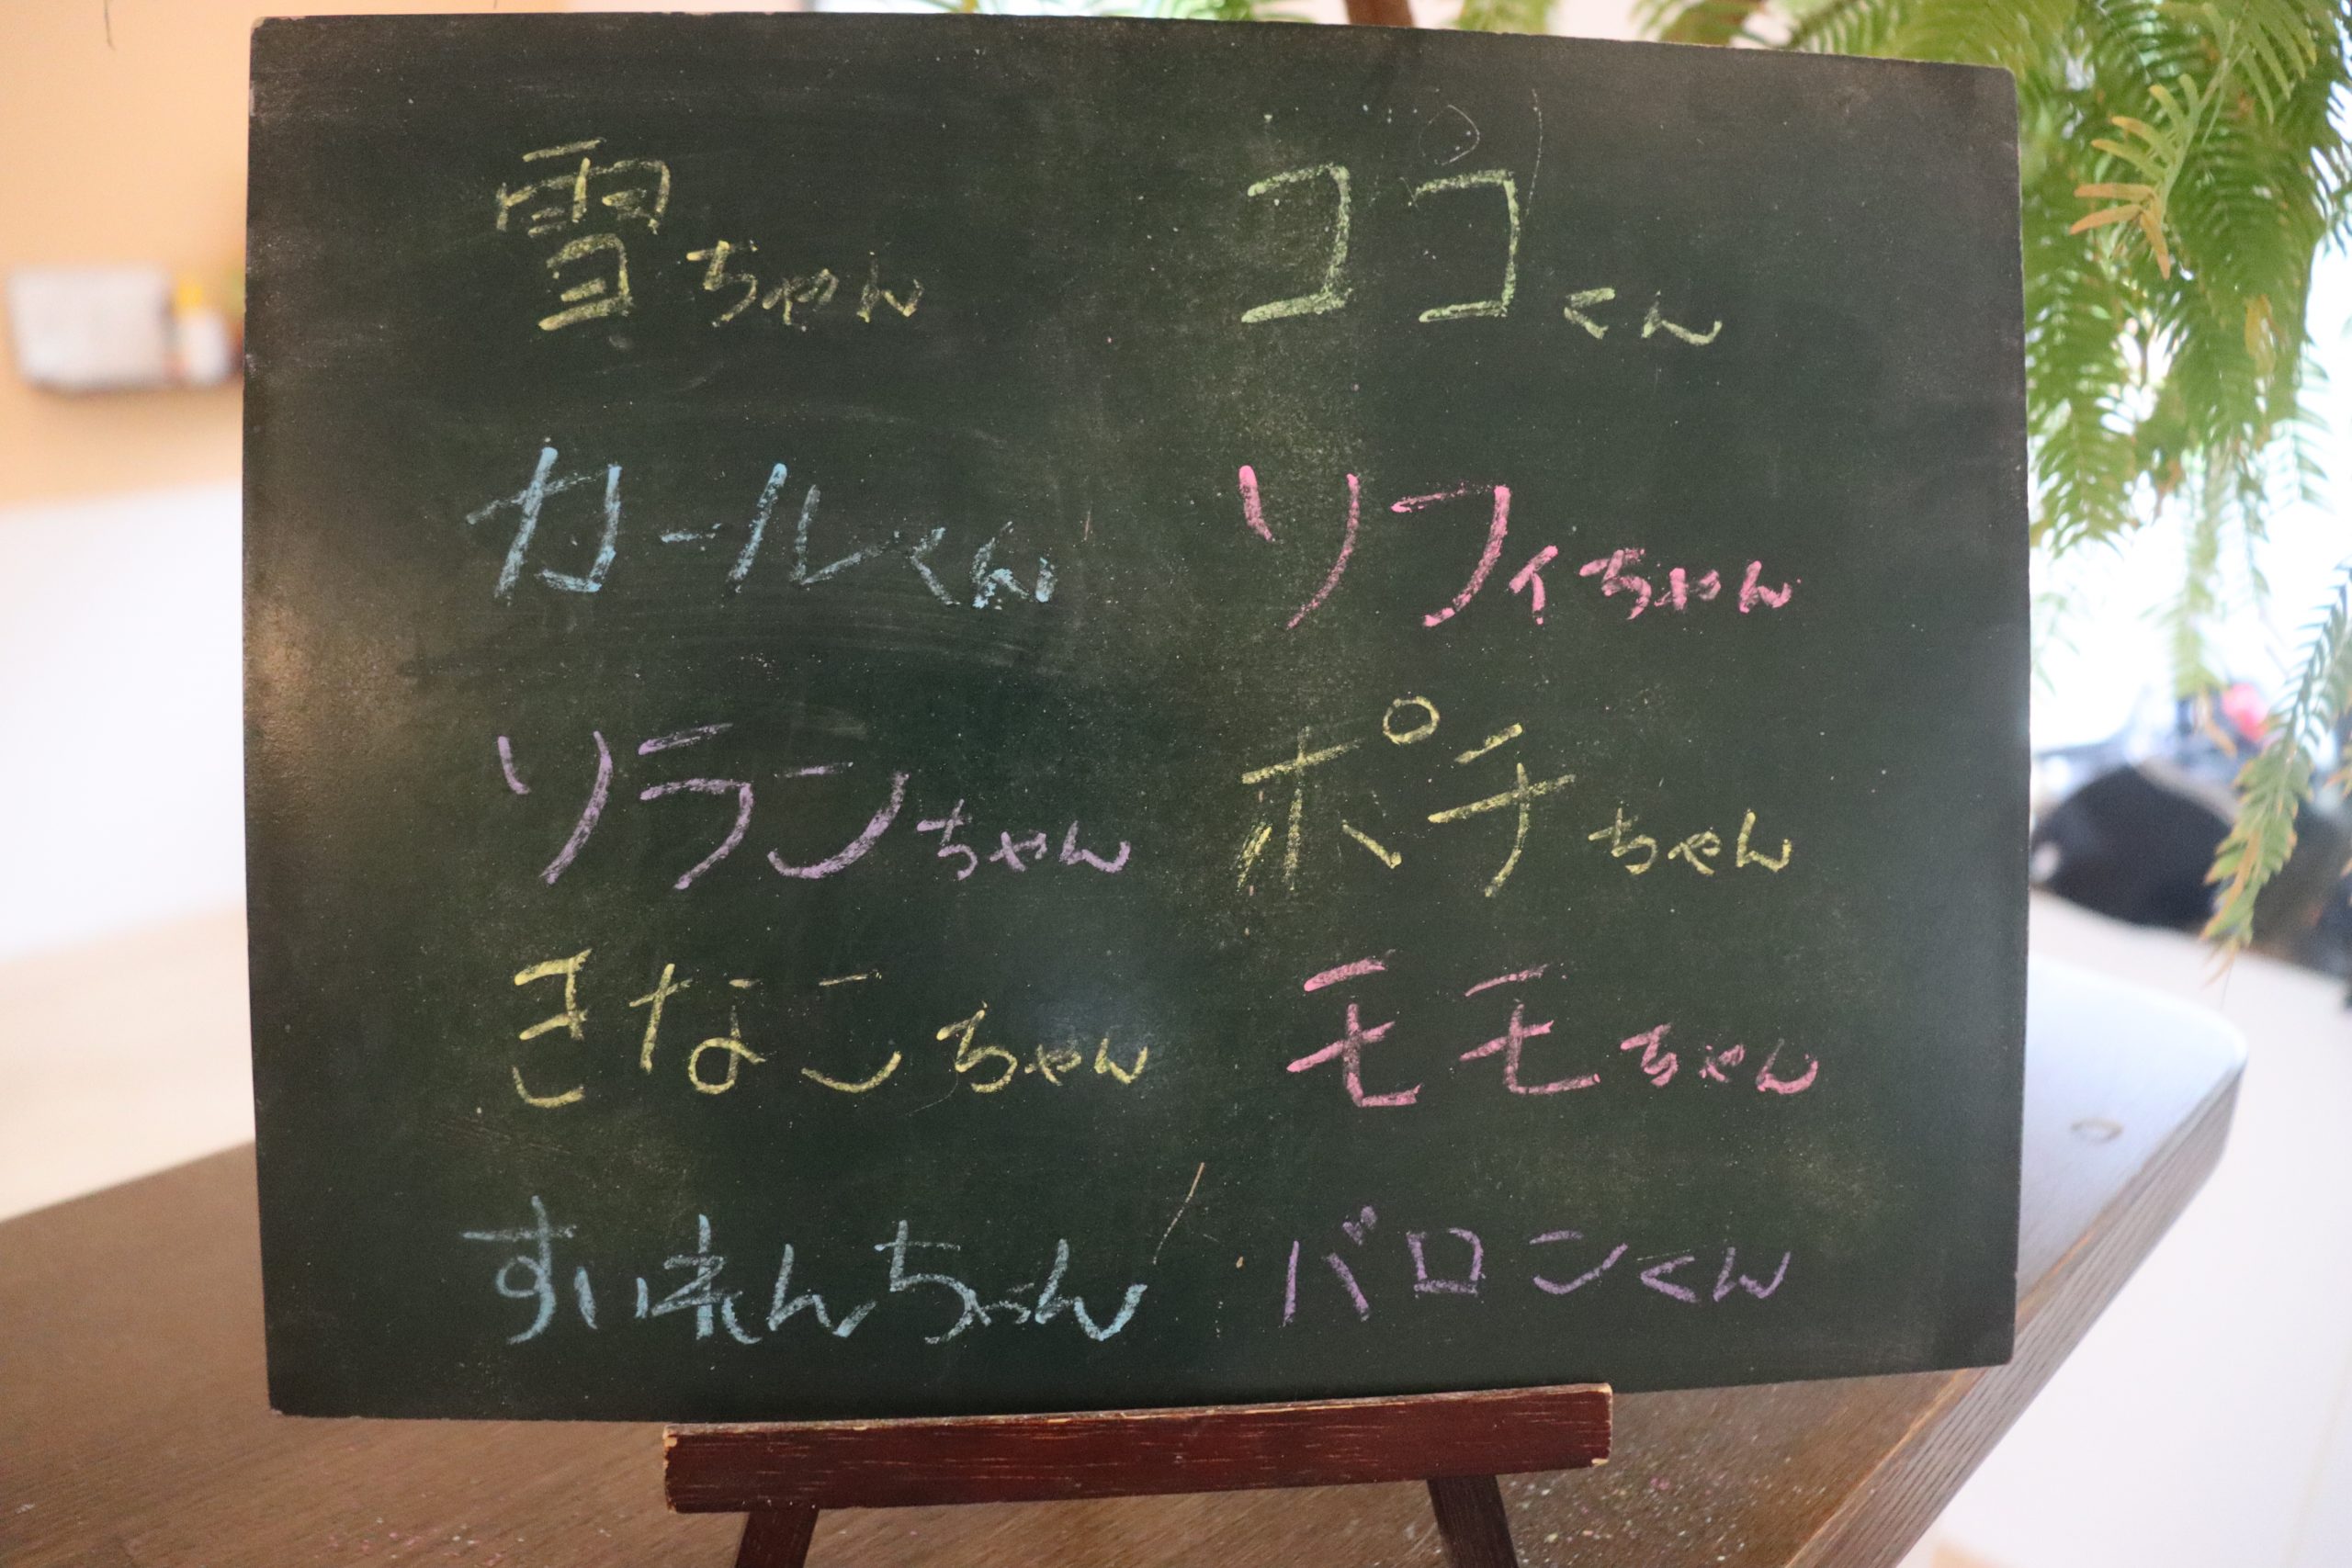 雪ちゃん ココくん
カールくん ソフィちゃん
ソランちゃん ポチちゃん
きなこちゃん モモちゃん
すいれんちゃん バロンくん